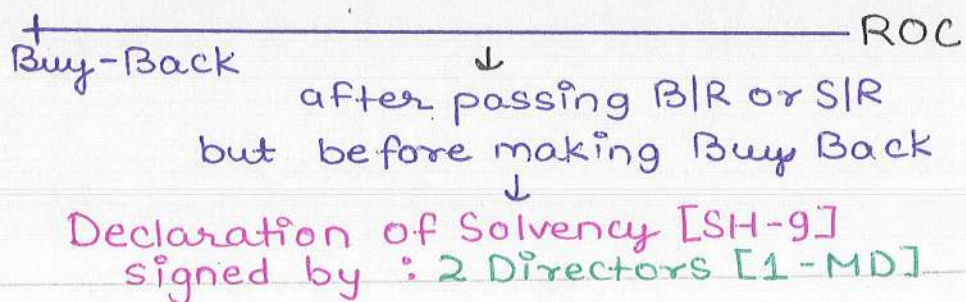 ROC
Buy-Back
↓
after passing B|R or S|R
but before making Buy Back
↓
Declaration of Solvency [SH-9]
signed by : 2 Directors [1-MD]